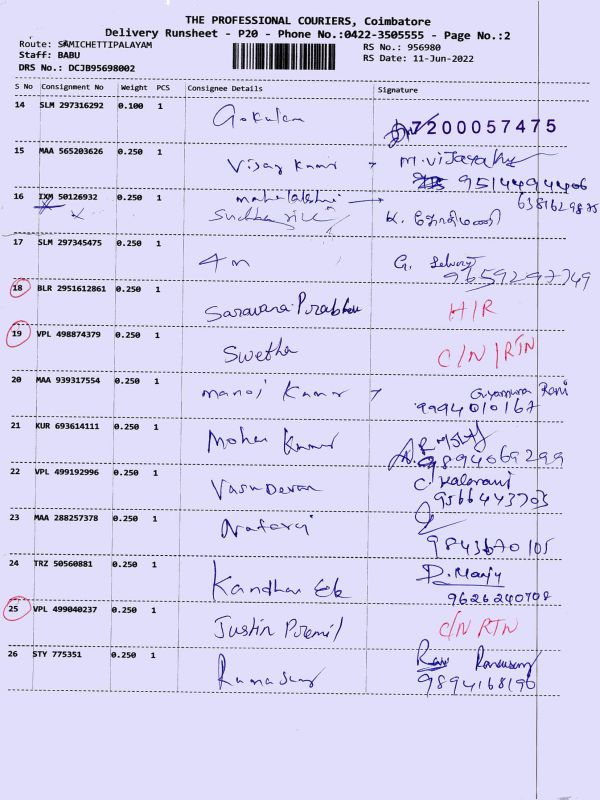 THE PROFESSIONAL COURIERS, Coimbatore
Delivery Runsheet - P20 - Phone No.:0422-3505555 - Page No.:2
Route: SAMICHETTIPALAYAM
RS No.: 956980
Staff: BABU
RS Date: 11-Jun-2022
DRS No.: DCJB95698002
S No Consignment No Weight PCS Consignee Details Signature
14 SLM 297316292 0.100 1 Gokulan 7200057475
15 MAA 565203626 0.250 1 Vijay Kumar M. Vijaya
9514494406
16 IXM 50126932 0.250 1 mahalakshmi 6381629875
17 SLM 297345475 0.250 1 4m G. Selvaraj
9659297749
18 BLR 2951612861 0.250 1 Saravana Prabhu H/R
19 VPL 498874379 0.250 1 Swetha C/N/RTN
20 MAA 939317554 0.250 1 Manoj Kumar Gyanuna Rani
9994010167
21 KUR 693614111 0.250 1 Mohan Kumar
9894069299
22 VPL 499192996 0.250 1 Vasudevan C. Kalarani
9566443703
23 MAA 288257378 0.250 1 Nataraj
9843670105
24 TRZ 50560881 0.250 1 Kandhan D. Manju
9626240708
25 VPL 499040237 0.250 1 Justin Premil C/N RTN
26 STY 775351 0.250 1 Ramasamy Ramasamy
9894168196